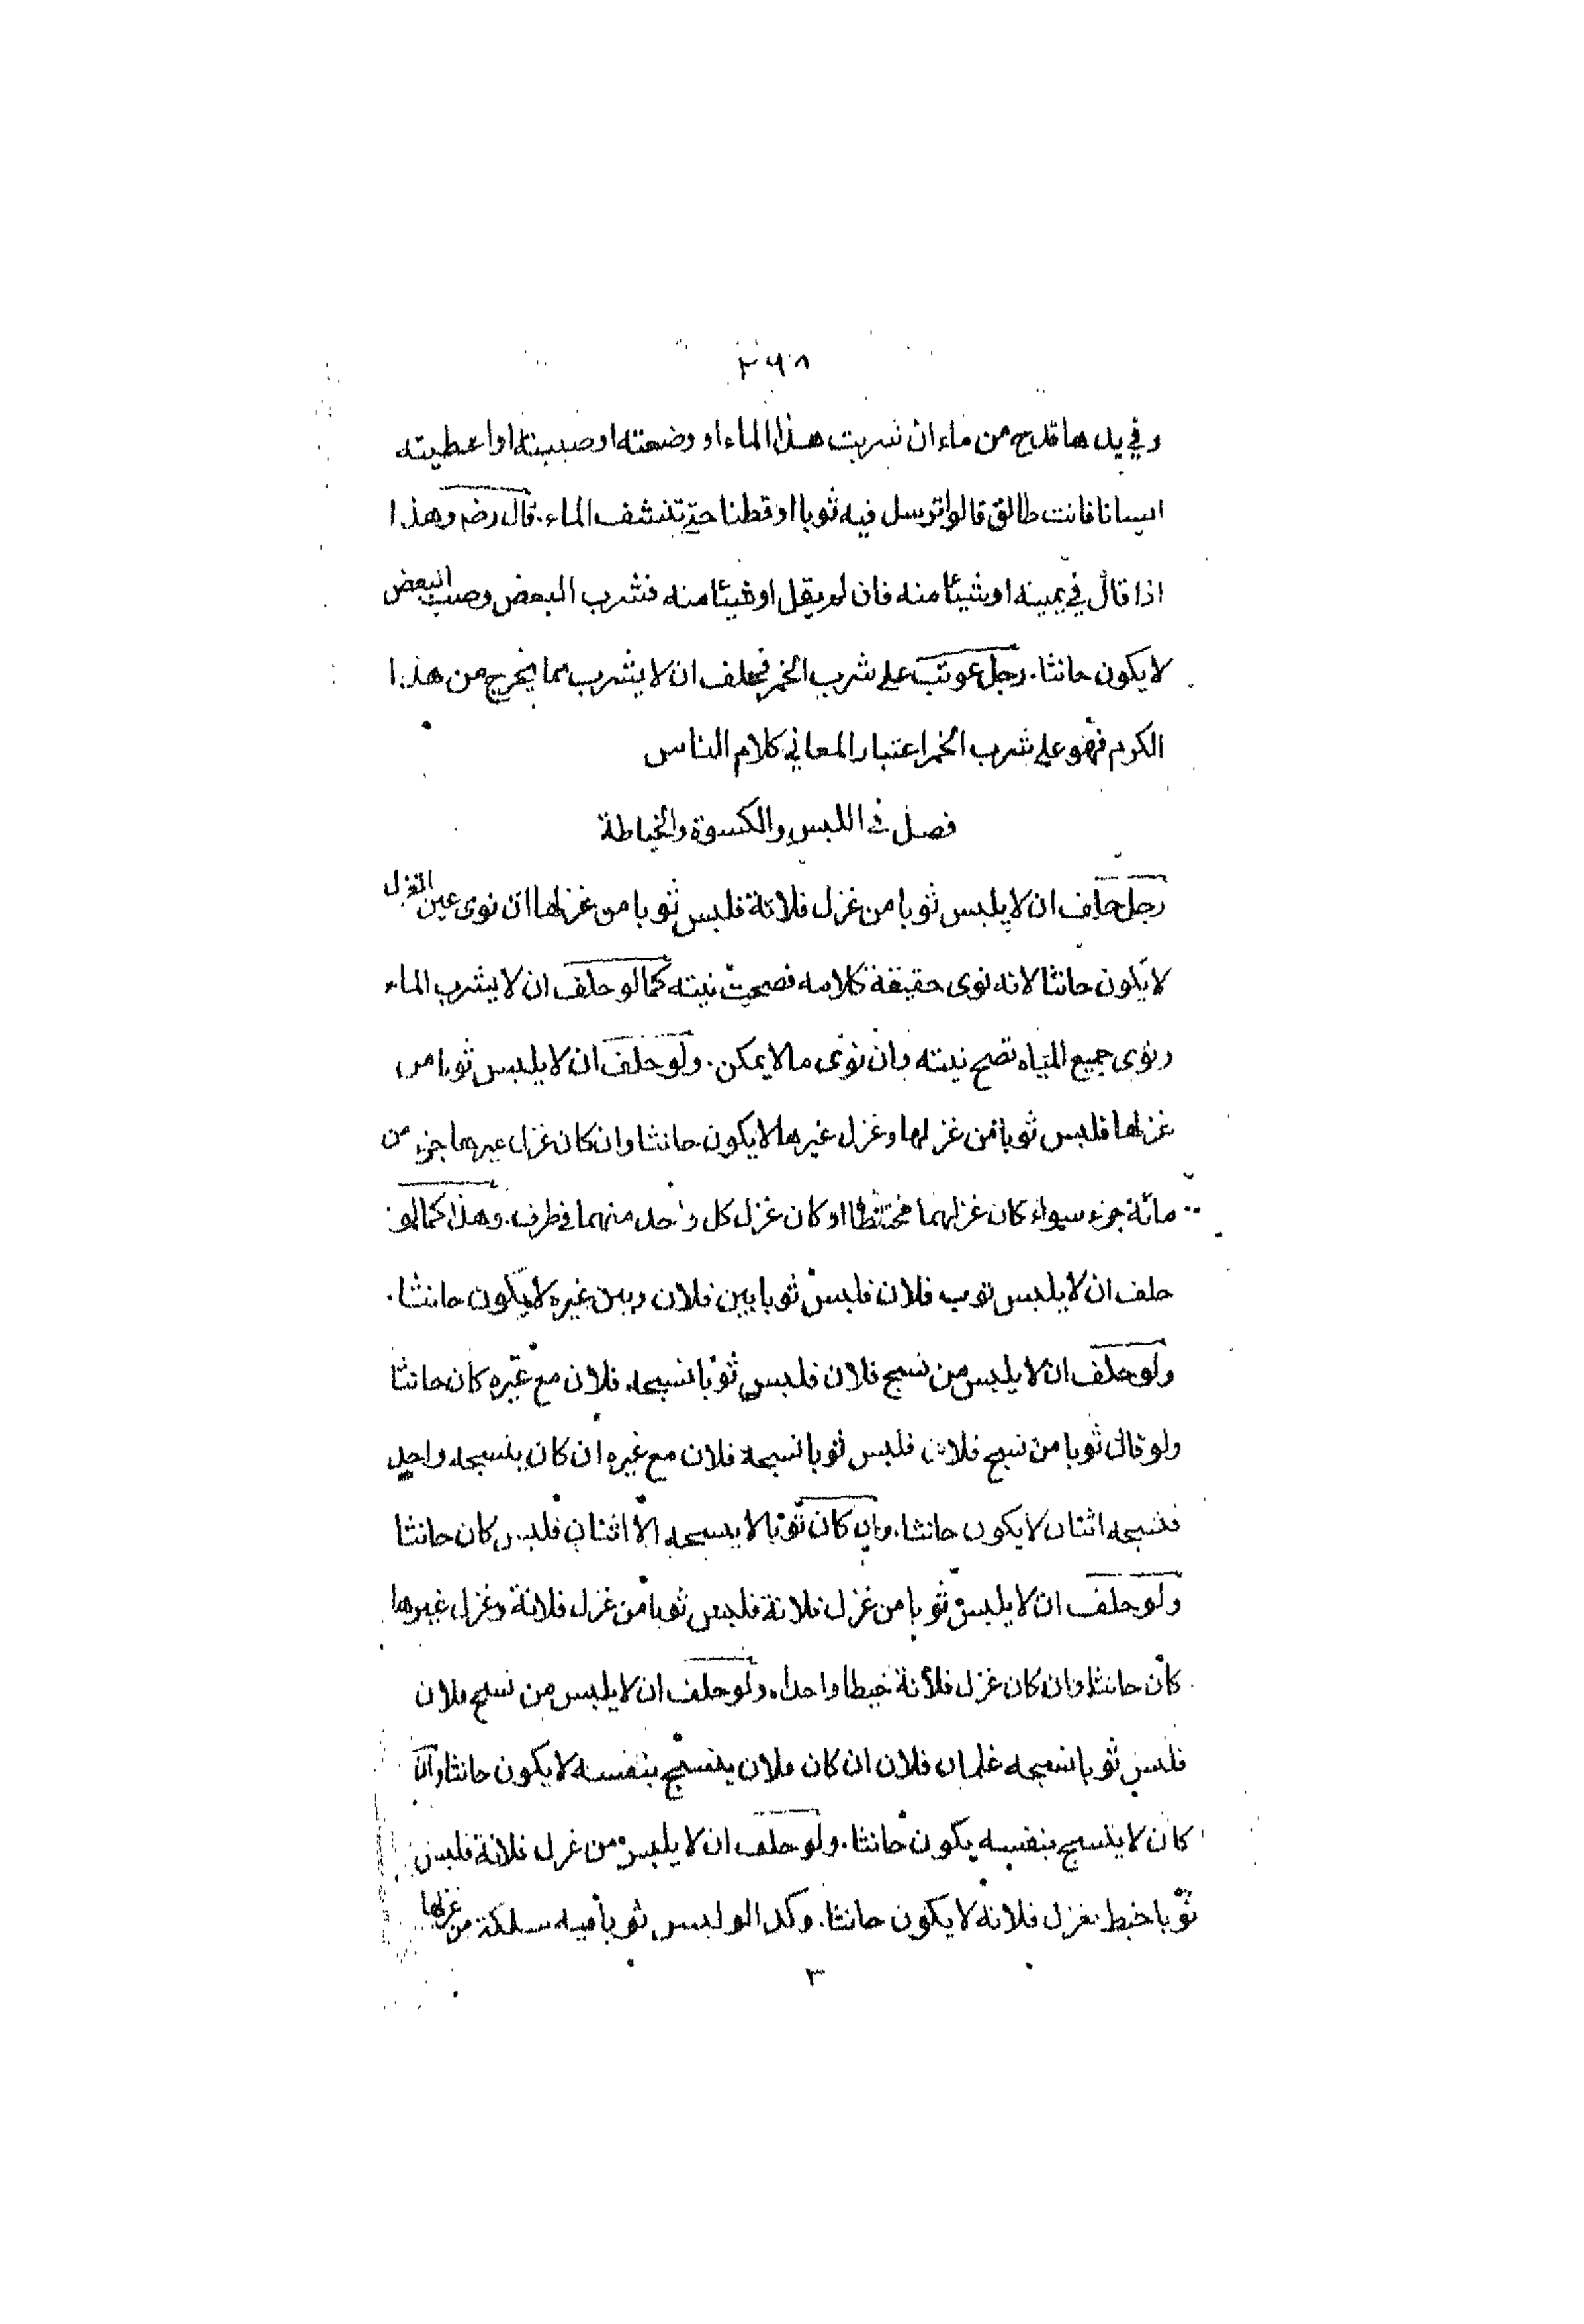 ٢٦٨
وفي يدها قدح من ماء ان شربت هذا الماء او وضعته او صببته او اعطيته
انسانا فانت طالق قالوا ترسل فيه ثوبا او قطنا حتى تنشف الماء. قال رضـ وهذا
اذا قال في يمينه او شيئا منه فان لم يقل او شيئا منه فشرب البعض وصب البعض
لا يكون حانثا. رجل عوتب على شرب الخمر فحلف ان لا يشرب مما يخرج من هذا
الكرم فهو على شرب الخمر اعتبارا لمعاني كلام الناس
فصل في اللبس والكسوة والخياطة
رجل حلف ان لا يلبس ثوبا من غزل فلانة فلبس ثوبا من غزلها ان نوى عين الغزل
لا يكون حانثا لانه نوى حقيقة كلامه فصحت نيته كما لو حلف ان لا يشرب الماء
ونوى جميع المياه تصح نيته وان نوى ما لا يمكن. ولو حلف ان لا يلبس ثوبا من
غزلها فلبس ثوبا من غزلها وغزل غيرها لا يكون حانثا وان كان غزل غيرها جزء من
مائة جزء سواء كان غزلهما مختلطا او كان غزل كل واحد منهما في طرف. وهذا كما لو
حلف ان لا يلبس ثوب فلان فلبس ثوبا بين فلان وبين غيره لا يكون حانثا.
ولو حلف ان لا يلبس من نسج فلان فلبس ثوبا نسجه فلان مع غيره كان حانثا
ولو قال ثوبا من نسج فلان فلبس ثوبا نسجه فلان مع غيره ان كان ينسجه واحد
فنسجه اثنان لا يكون حانثا. وان كان ثوبا لا ينسجه الا اثنان فلبس كان حانثا
ولو حلف ان لا يلبس ثوبا من غزل فلانة فلبس ثوبا من غزل فلانة وغزل غيرها
كان حانثا وان كان غزل فلانة خيطا واحدا. ولو حلف ان لا يلبس من نسج فلان
فلبس ثوبا نسجه غلمان فلان ان كان فلان ينسج بنفسه لا يكون حانثا وان
كان لا ينسج بنفسه يكون حانثا. ولو حلف ان لا يلبس من غزل فلانة فلبس
ثوبا خيط بغزل فلانة لا يكون حانثا. وكذا لو لبس ثوبا فيه سلكة من غزلها
٣